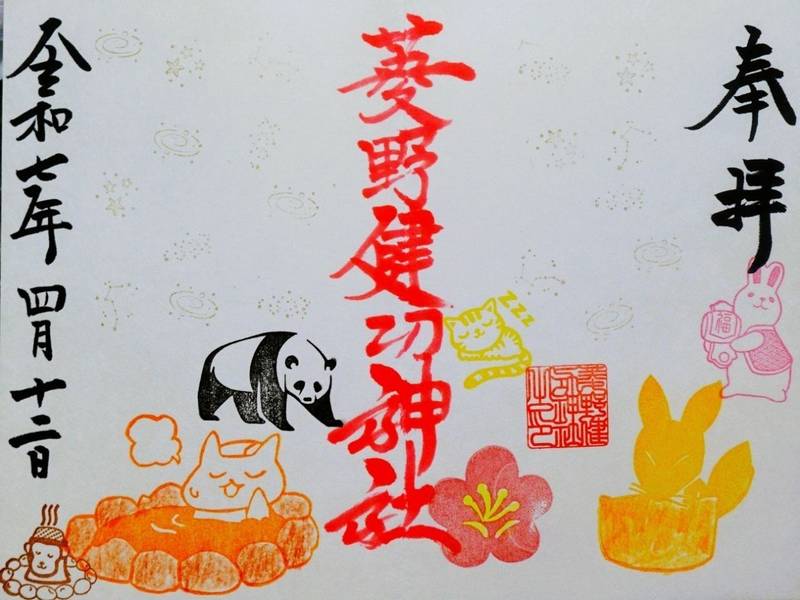 奉拝
福
菱野健功神社
zzz
令和七年 四月十二日